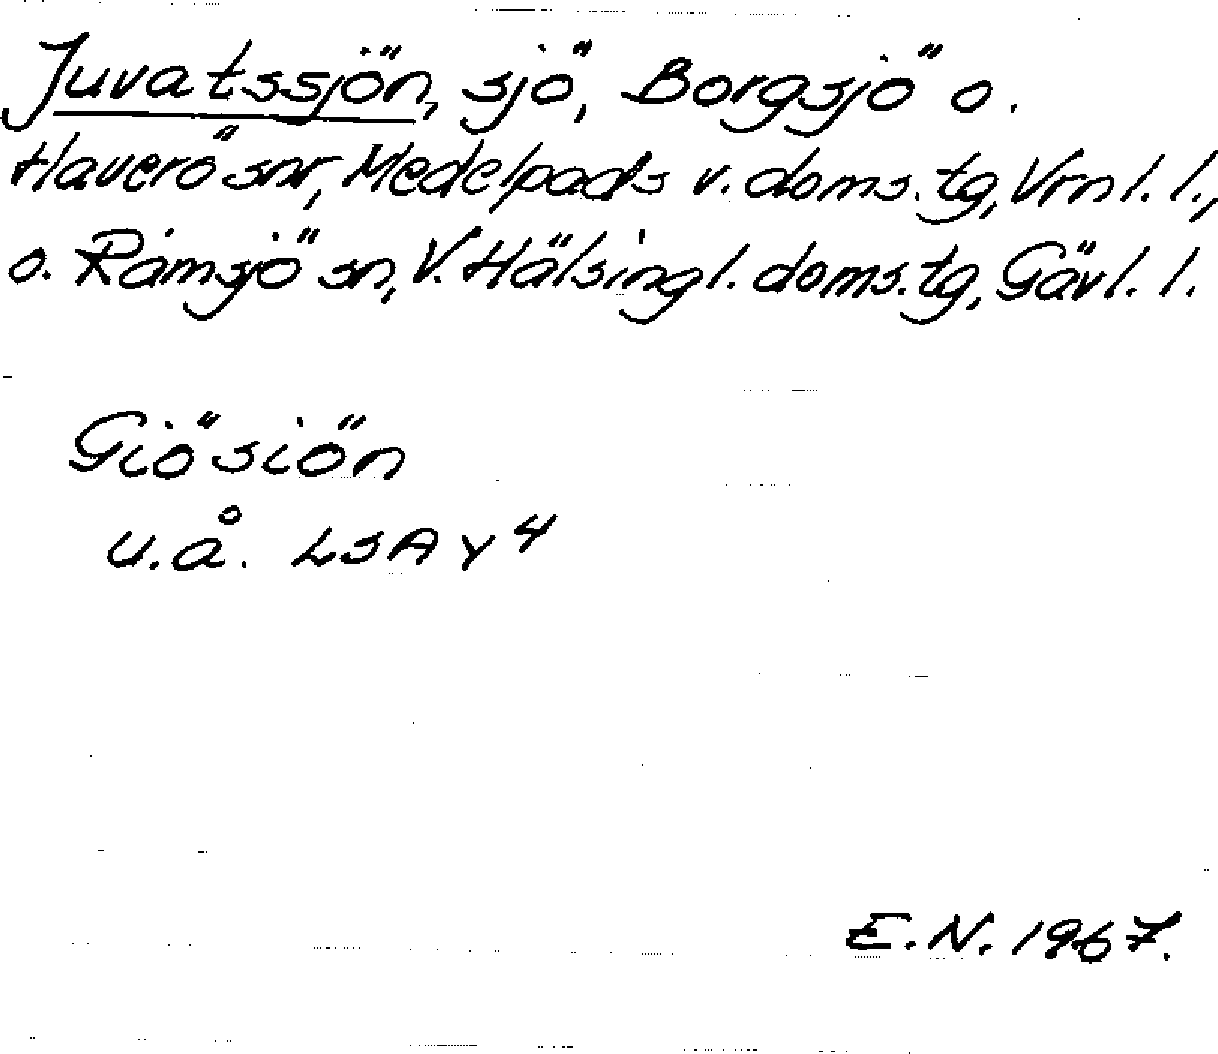 Juvatssjön, sjö, Borgsjö o.
Haverö snr, Medelpads v. doms.tg, Vrnl. l.,
o. Ramsjö sn, V. Hälsingl. doms.tg, Gävl. l.
Giösiön
u.å. LSA Y4
E.N. 1967.